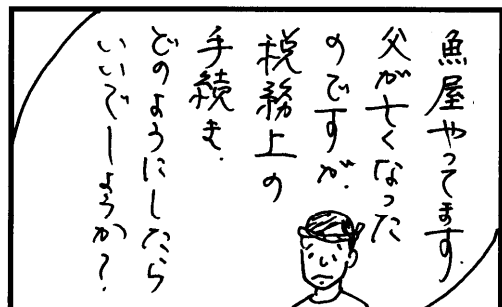 魚屋やってます.
父が亡くなった
のですが.
税務上の
手続き.
どのようにしたら
いいでしょうか?